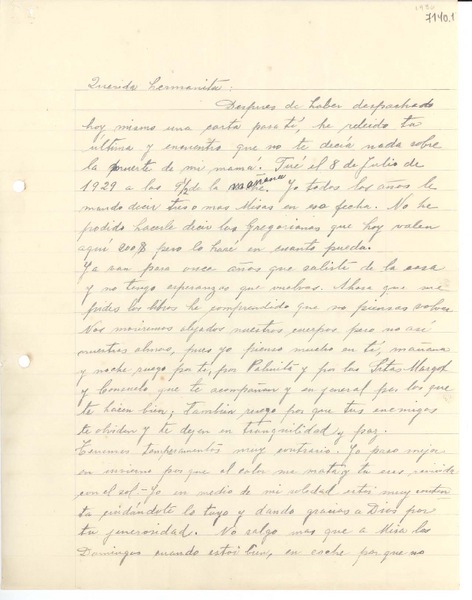 7140.1
Querida hermanita:
Despues de haber despachado
hoy mismo una carta para tí, he releido tu
última y encuentro que no te decía nada sobre
la muerte de mi mamá. Fué el 8 de Julio de
1929 a las 9½ de la mañana. Yo todos los años le
mando decir tres o mas Misas en esa fecha. No he
podido hacerle decir las Gregorianas que hoy valen
aquí 200$ pero lo haré en cuanto pueda.
Ya van para once años que saliste de la casa
y no tengo esperanzas que vuelvas. Ahora que me
pides los libros he comprendido que no piensas volver.
Nos moriremos alejados nuestros cuerpos pero no así
nuestras almas, pues yo pienso mucho en tí, mañana
y noche ruego por tí, por Palmita y por las Srtas Margot
y Consuelo que te acompañan y en general por los que
te hacen bien; tambien ruego por que tus enemigos
te olviden y te dejen en tranquilidad y paz.
Tenemos temperamentos muy contrario. Yo paso mejor
en invierno por que el calor me mata y tu eres
con el sol.- Yo en medio de mi soledad estoi muy conten
ta cuidándote lo tuyo y dando gracias a Dios por
tu jenerosidad. No salgo mas que a Misa los
Domingos cuando estoi bien, en coche por que no